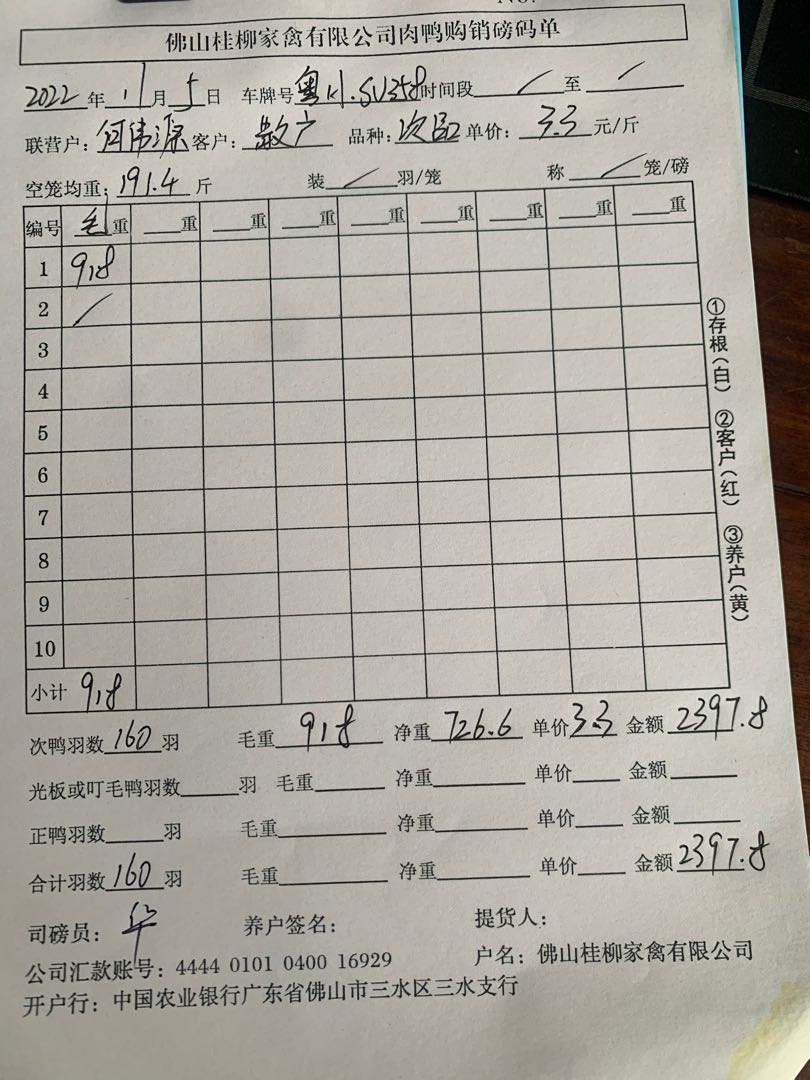 No.
佛山桂柳家禽有限公司肉鸭购销磅码单
2022 年 11 月 5 日 车牌号 时间段 / 至 /
联营户：何伟源 客户：散户 品种：次品 单价：3.3 元/斤
空笼均重：191.4 斤 装 / 羽/笼 称 / 笼/磅
编号 毛重 重 重 重 重 重 重 重 重
1 918
2 /
3
4
5
6
7
8
9
10
小计 918
①存根（白） ②客户（红） ③养户（黄）
次鸭羽数 160 羽 毛重 918 净重 726.6 单价 3.3 金额 2397.8
光板或叮毛鸭羽数 羽 毛重 净重 单价 金额
正鸭羽数 羽 毛重 净重 单价 金额
合计羽数 160 羽 毛重 净重 单价 金额 2397.8
司磅员：华 养户签名： 提货人：
公司汇款账号：4444 0101 0400 16929 户名：佛山桂柳家禽有限公司
开户行：中国农业银行广东省佛山市三水区三水支行